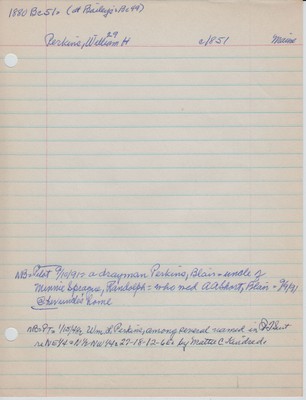 1880 Bc51* (at Bailey's Bc49)
29
Perkins, William H c/1851 Maine
NB: Pilot 9/10/91 = a drayman Perkins, Blair = uncle of
Minnie Sprague, Randolph = who med A Abbott, Blair = 9/9/91
@ her uncle's home
NB: PT 1/10/44: Wm H. Perkins, among several named in
NW 1/4 = N 1/2 NW 1/4 27-18-12 by Mattie C.